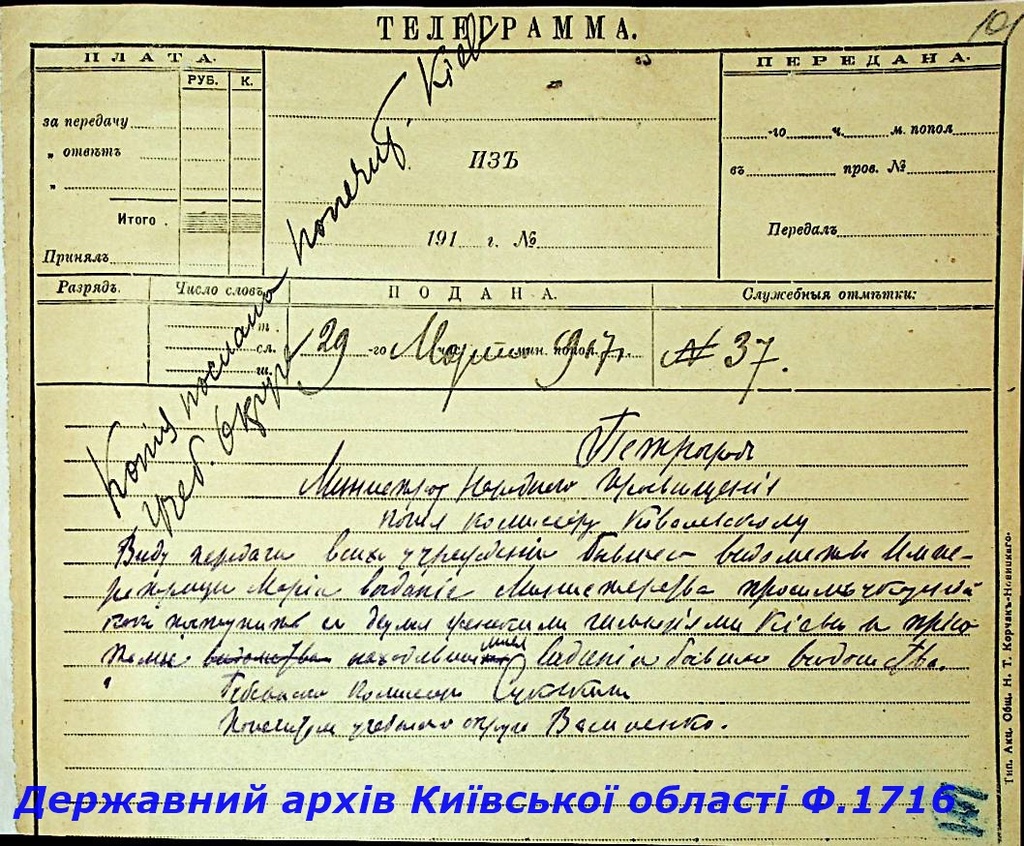 ТЕЛЕГРАММА.
ПЛАТА.
РУБ. К.
за передачу
„ отвѣтъ
„
Итого
Принялъ
ИЗЪ
191 г. №
ПЕРЕДАНА.
-го ч. м. попол
въ пров. №
Передалъ
Разрядъ.
Число словъ
т.
сл.
ш.
ПОДАНА.
29 -го Марта 917. мин. попол.
Служебныя отмѣтки:
№ 37.
Копія послана попечит. Кіев
учеб. Округа
Петроград
Министрор Народного Просвещенія
Копія комиссару Ковалевскому
Виду передачи всих учреждений бывшего ведомства Импе-
ратрицы Маріи веденіе Министерства просим
как поступить с двумя женскими гимназіями Кіева
находивши бывшего ведомства.
Губернскій Комиссар Суковкин
Попечитель учебного округа Василенко.
Тип. Акц. Общ. Н. Т. Корчакъ-Новицкаго.
Державний архів Київської області Ф.1716